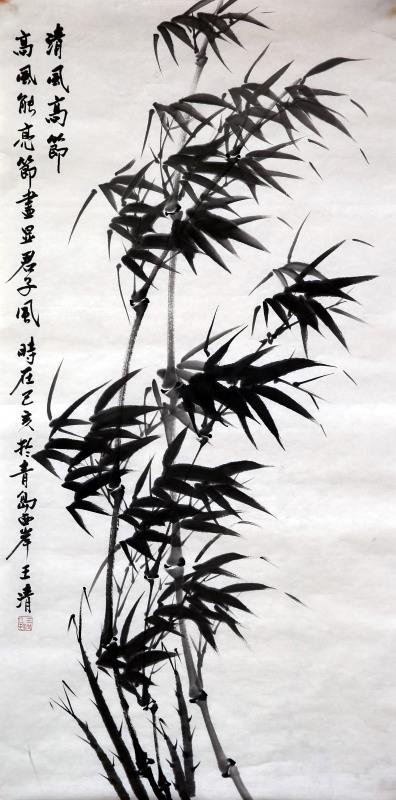 清風高節
高風能亮節畫显君子風 時在己亥於青島西岸 王清